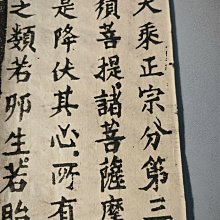 大乘正宗分第三
須菩提諸菩薩摩
是降伏其心所有
之類若卵生若胎